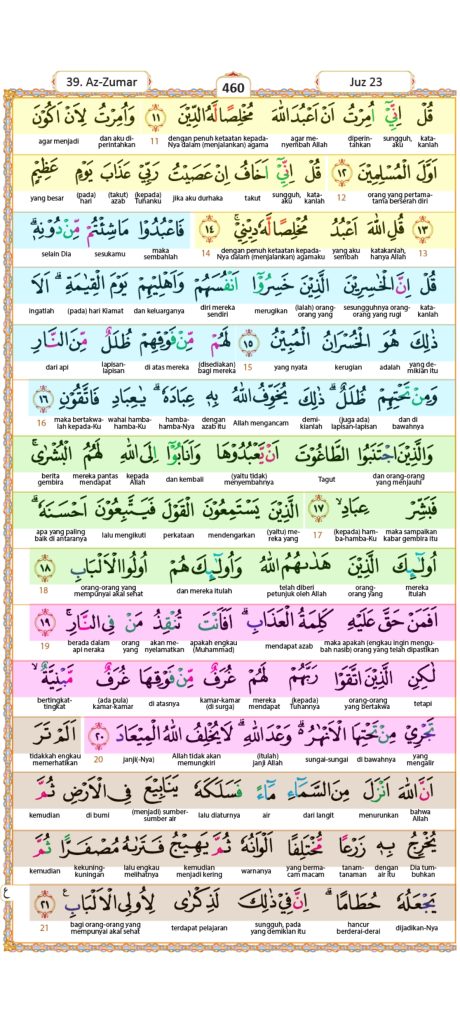 39. Az-Zumar
460
Juz 23
قُلْ اِنِّيْٓ اُمِرْتُ اَنْ اَعْبُدَ اللّٰهَ مُخْلِصًا لَّهُ الدِّيْنَۙ ١١ وَاُمِرْتُ لِاَنْ اَكُوْنَ
kata-kanlah sungguh, aku diperin-tahkan agar me-nyembah Allah dengan penuh ketaatan kepada-Nya dalam (menjalankan) agama 11 dan aku di-perintahkan agar menjadi
اَوَّلَ الْمُسْلِمِيْنَ ١٢ قُلْ اِنِّيْٓ اَخَافُ اِنْ عَصَيْتُ رَبِّيْ عَذَابَ يَوْمٍ عَظِيْمٍ
orang yang pertama-tama berserah diri 12 kata-kanlah sungguh, aku takut jika aku durhaka (kepada) Tuhanku (takut) azab (pada) hari yang besar
١٣ قُلِ اللّٰهَ اَعْبُدُ مُخْلِصًا لَّهٗ دِيْنِيْۚ ١٤ فَاعْبُدُوْا مَا شِئْتُمْ مِّنْ دُوْنِهٖۗ
13 katakanlah, hanya Allah yang aku sembah dengan penuh ketaatan kepada-Nya dalam (menjalankan) agamaku 14 maka sembahlah sesukamu selain Dia
قُلْ اِنَّ الْخٰسِرِيْنَ الَّذِيْنَ خَسِرُوْٓا اَنْفُسَهُمْ وَاَهْلِيْهِمْ يَوْمَ الْقِيٰمَةِۗ اَلَا
kata-kanlah sesungguhnya orang-orang yang rugi (ialah) orang-orang yang merugikan diri mereka sendiri dan keluarganya (pada) hari Kiamat ingatlah
ذٰلِكَ هُوَ الْخُسْرَانُ الْمُبِيْنُ ١٥ لَهُمْ مِّنْ فَوْقِهِمْ ظُلَلٌ مِّنَ النَّارِ
yang de-mikian itu adalah kerugian yang nyata 15 (disediakan) bagi mereka di atas mereka lapisan-lapisan dari api
وَمِنْ تَحْتِهِمْ ظُلَلٌۗ ذٰلِكَ يُخَوِّفُ اللّٰهُ بِهٖ عِبَادَهٗۗ يٰعِبَادِ فَاتَّقُوْنِ ١٦
dan di bawahnya (juga ada) lapisan-lapisan demi-kianlah Allah mengancam dengan azab itu hamba-hamba-Nya wahai hamba-hamba-Ku maka bertakwa-lah kepada-Ku 16
وَالَّذِيْنَ اجْتَنَبُوا الطَّاغُوْتَ اَنْ يَّعْبُدُوْهَا وَاَنَابُوْٓا اِلَى اللّٰهِ لَهُمُ الْبُشْرٰىۚ
dan orang-orang yang menjauhi Tagut (yaitu tidak) menyembahnya dan kembali kepada Allah mereka pantas mendapat berita gembira
فَبَشِّرْ عِبَادِۙ ١٧ الَّذِيْنَ يَسْتَمِعُوْنَ الْقَوْلَ فَيَتَّبِعُوْنَ اَحْسَنَهٗۗ
maka sampaikan kabar gembira itu (kepada) hamba-hamba-Ku 17 (yaitu) me-reka yang mendengarkan perkataan lalu mengikuti apa yang paling baik di antaranya
اُولٰۤىِٕكَ الَّذِيْنَ هَدٰىهُمُ اللّٰهُ وَاُولٰۤىِٕكَ هُمْ اُولُوا الْاَلْبَابِ ١٨
mereka itulah orang-orang yang telah diberi petunjuk oleh Allah dan mereka itulah orang-orang yang mempunyai akal sehat 18
اَفَمَنْ حَقَّ عَلَيْهِ كَلِمَةُ الْعَذَابِۗ اَفَاَنْتَ تُنْقِذُ مَنْ فِى النَّارِۚ ١٩
maka apakah (engkau ingin mengu-bah nasib) orang yang telah dipastikan mendapat azab apakah engkau (Muhammad) akan me-nyelamatkan orang yang berada dalam api neraka 19
لٰكِنِ الَّذِيْنَ اتَّقَوْا رَبَّهُمْ لَهُمْ غُرَفٌ مِّنْ فَوْقِهَا غُرَفٌ مَّبْنِيَّةٌۙ
tetapi orang-orang yang bertakwa (kepada) Tuhannya mereka mendapat kamar-kamar (di surga) di atasnya (ada pula) kamar-kamar bertingkat-tingkat
تَجْرِيْ مِنْ تَحْتِهَا الْاَنْهٰرُۗ وَعْدَ اللّٰهِۗ لَا يُخْلِفُ اللّٰهُ الْمِيْعَادَ ٢٠ اَلَمْ تَرَ
yang mengalir di bawahnya sungai-sungai (itulah) janji Allah Allah tidak akan memungkiri janji(-Nya) 20 tidakkah engkau memerhatikan
اَنَّ اللّٰهَ اَنْزَلَ مِنَ السَّمَاۤءِ مَاۤءً فَسَلَكَهٗ يَنَابِيْعَ فِى الْاَرْضِ ثُمَّ
bahwa Allah menurunkan dari langit air lalu diaturnya (menjadi) sumber-sumber air di bumi kemudian
يُخْرِجُ بِهٖ زَرْعًا مُّخْتَلِفًا اَلْوَانُهٗ ثُمَّ يَهِيْجُ فَتَرٰىهُ مُصْفَرًّا ثُمَّ
Dia tum-buhkan dengan air itu tanam-tanaman yang berma-cam macam warnanya kemudian menjadi kering lalu engkau melihatnya kekuning-kuningan kemudian
يَجْعَلُهٗ حُطَامًاۗ اِنَّ فِيْ ذٰلِكَ لَذِكْرٰى لِاُولِى الْاَلْبَابِ ٢١
dijadikan-Nya hancur berderai-derai sungguh, pada yang demikian itu terdapat pelajaran bagi orang-orang yang mempunyai akal sehat 21
ع